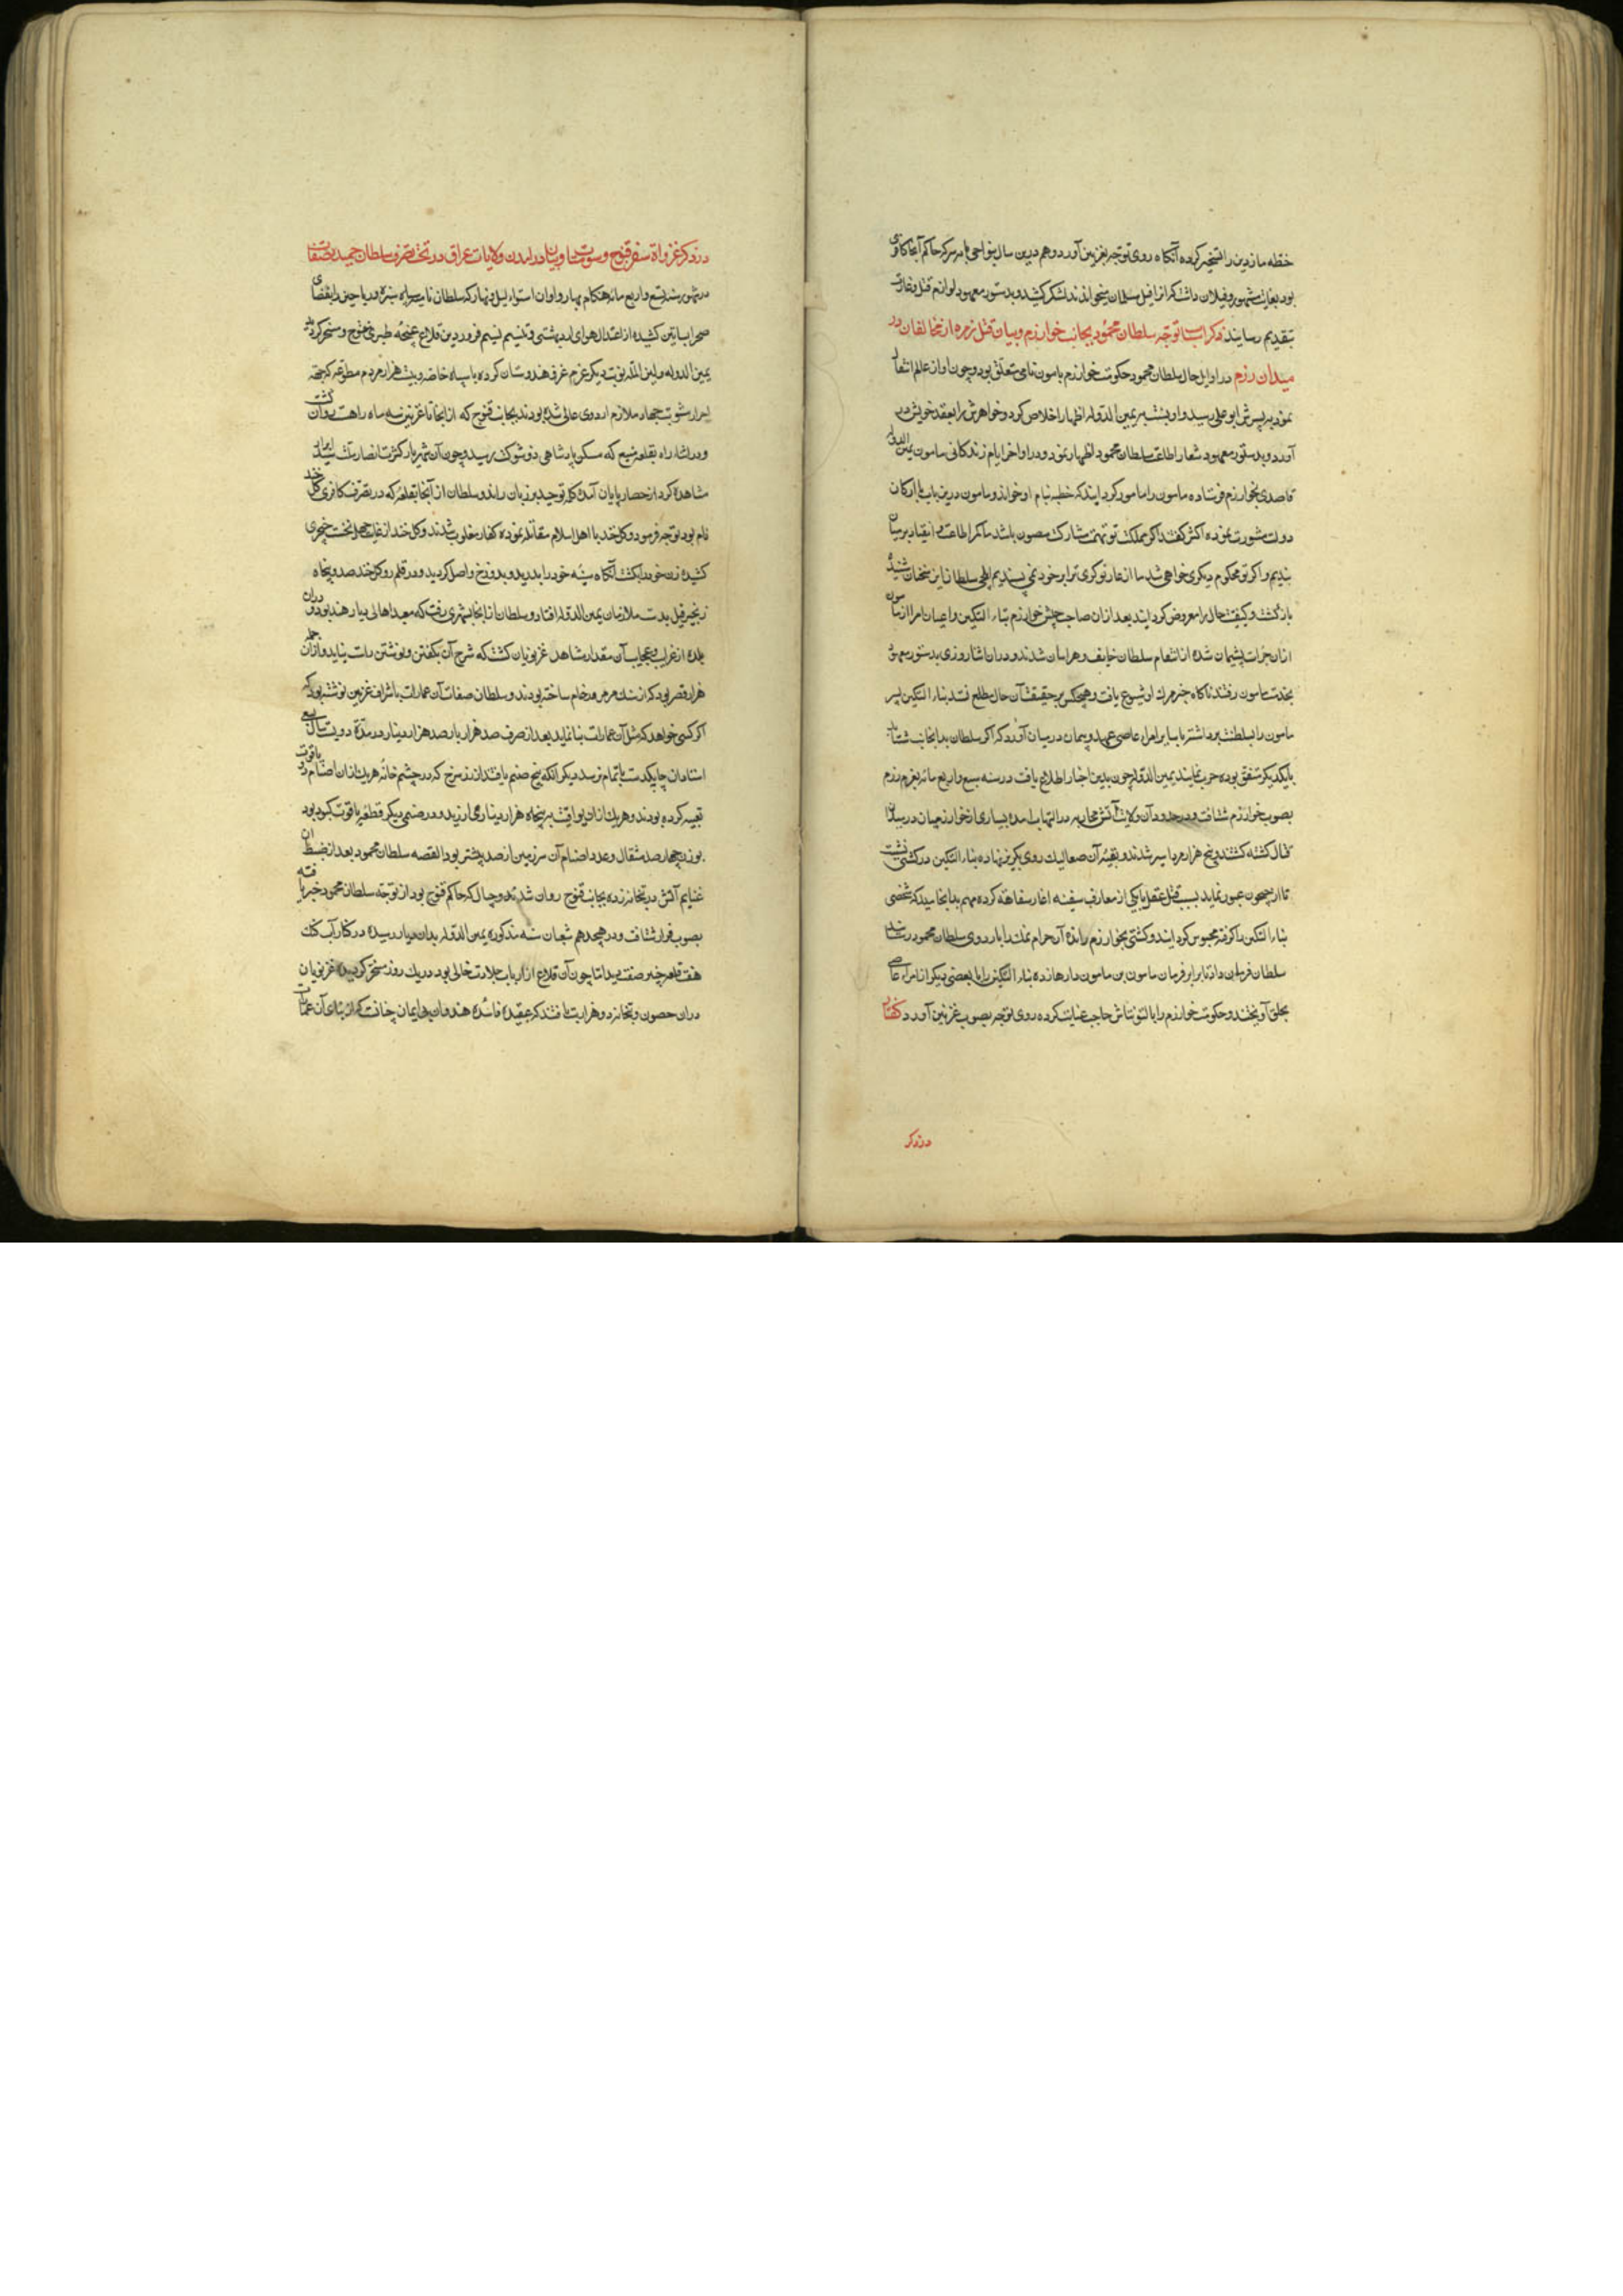 خطه ماردین را تسخیر کرده آنکاه روی توجه بغزنین آورد و هم درین سال بنواحی تانیسر که حاکم آنجا کافری
بود بغایت مشهور و فیلان داشت که انرا فیل مسلمان میخواندند لشکر کشید و بدستور معهود لوازم قتل و غارت
بتقدیم رسانید ذکر اسباب توجه سلطان محمود بجانب خوارزم و بیان قتل زمره از مخالفان در
میدان رزم در اوایل حال سلطان محمود حکومت خوارزم بامون نامی تعلق بود و چون او از عالم انتقال
نمود پسرش ابو علی رسید و او نسبت بیمین الدوله اظهار اخلاص کرد و خواهرش را بعقد خویش در
آورد و بدستور معهود شعار اطاعت سلطان محمود اظهار نمود و در اواخر ایام زندکانی مامون یمین الدوله
قاصدی بخوارزم فرستاده مامون را مامور کردانید که خطبه بنام او خواند و مامون درین باب با ارکان
دولت مشورت نموده اکثر کفتند اکر مملکت تو از تهمت مشارکت مصون باشد ما کمر اطاعت و انقیاد بر میان
بندیم و اکر تو محکوم دیکری خواهی شد ما از عار نوکری ترا بر خود نمی پسندیم ایلچی سلطان این سخنان شنیده
بازکشت و کیفیت حال را معروض کردانید بعد ازان صاحب جیش خوارزم بنالتکین و اعیان امرا از مامون
ازان جرات پشیمان شده از انتقام سلطان خایف و هراسان شدند و دران اثنا روزی بدستور معهود
بخدمت مامون رفتند ناکاه خبر مرک او شیوع یافت و هیچکس بر حقیقت آن حال مطلع نشد بنالتکین پسر
مامون را بسلطنت برداشته با سایر امراء عاصی عهد و پیمان در میان آورد که اکر سلطان بدانجانب شتابد
با یکدیکر متفق بوده حرب نمایند یمین الدوله چون بدین اخبار اطلاع یافت در سنه سبع و اربع مائه بعزم رزم
بصوب خوارزم شتافت و در حدود آن ولایت آتش محاربه در التهاب آمده بسیاری از خوارزمیان در میدان
قتال کشته کشتند و پنج هزار مرد اسیر شدند و بقیه آن صعالیک روی بکریز نهاده بنالتکین در کشتی نشست
تا از جیحون عبور نماید بسبب قلت عقل با یکی از معارف سفینه اغاز سفاهت کرده مهم بدانجا رسید که شخصی
بنالتکین را کرفته محبوس کردانید و کشتی بخوارزم رانده آن حرام نمک را باردوی سلطان محمود رسانید
سلطان فرمان داد تا برابر فرمان مامون بن مامون دارها زده بنالتکین را با بعضی دیکر از امراء عاصی
بحلق آویختند و حکومت خوارزم را بالتونتاش حاجب عنایت کرده روی توجه بصوب غزنین آورد کفتار
در ذکر
در ذکر غزواة سفر قنوج و سومنات و بیان در آمدن ولایات عراق در تحت تصرف سلطان حمیده صفات
در شهور سنه تسع و اربع مائه هنکام بهار و اوان استواء لیل و نهار که سلطان نامیه سپاه سبزه و ریاحین را بفضای
صحرا و بساتین کشیده از اعتدال هوای اردیبهشتی و تنسیم نسیم فروردین قلاع غنچه طبری مفتوح و مسخر کردید
یمین الدوله و امین المله نوبت دیکر عزم غزو هندوستان کرده با سپاه خاصه و بیست هزار مردم مطوعه که بجهة
احراز مثوبت جهاد ملازم اردوی عالی شده بودند بجانب قنوج که از انجا تا غزنین سه ماه راهست روان کشت
و در اثناء راه بقلعه رسیم که مسکن پادشاهی ذو شوکت رسید و چون آن شهریار کثرت انصار ملت سید ابرار
مشاهده کرد از حصار پایان آمده کلمه توحید بر زبان راند و سلطان از آنجا بقلعه که در تصرف کافری کلچند
نام بود توجه فرمود و کلچند با اهل اسلام مقاتله نموده کفار مغلوب شدند و کلچند از غایت جهل نخست خنجری
کشیده زن خود را بکشت آنکاه سینه خود را بدرید و بدوزخ واصل کردید و در قلمرو کلچند صد و پنجاه
زنجیر فیل بدست ملازمان یمین الدوله افتاد و سلطان از انجا بشهری رفت که معبد اهالی دیار هند بود و دران
بلده از غرایب و عجایب آن مقدار مشاهد غزنویان کشت که شرح آن بکفتن و نوشتن راست نیاید و ازان جمله
هزار قصر بود که از سنک مرمر و رخام ساخته بودند و سلطان صفات آن عمارات باشراف غزنین نوشته بود که
اکر کسی خواهد که مثل آن عمارات بنا نماید بعد از صرف صد هزار بار صد هزار دینار در مدة دویست سال بسعی
استادان چابکدست باتمام نرسد دیکر آنکه پنج صنم یافتند از زر سرخ که در چشم خانه هر یک ازان اصنام دو یاقوت
تعبیه کرده بودند و هر یک ازان یواقیت به پنجاه هزار دینار می ارزید و در صنمی دیکر قطعه یاقوت کبود بود
بوزن چهار صد مثقال و عدد اصنام آن سرزمین از صد بیشتر بود القصه سلطان محمود بعد از ضبط ان
غنایم آتش در بتخانه زده بجانب قنوج روان شد و جیپال که حاکم قنوج بود از توجه سلطان محمود خبر یافته
بصوب فرار شتافت و در هیجدهم شعبان سنه مذکوره یمین الدوله بدان دیار رسیده در کنار آب کنک
هفت قلعه خیبر صفت دید اما چون آن قلاع از ارباب جلادت خالی بود در یک روز مسخر کردید و غزنویان
دران حصون بتخانه ده هزار یافتند که عقیده فاسده هندوان بی ایمان چنانست که از بنای آن عمارات